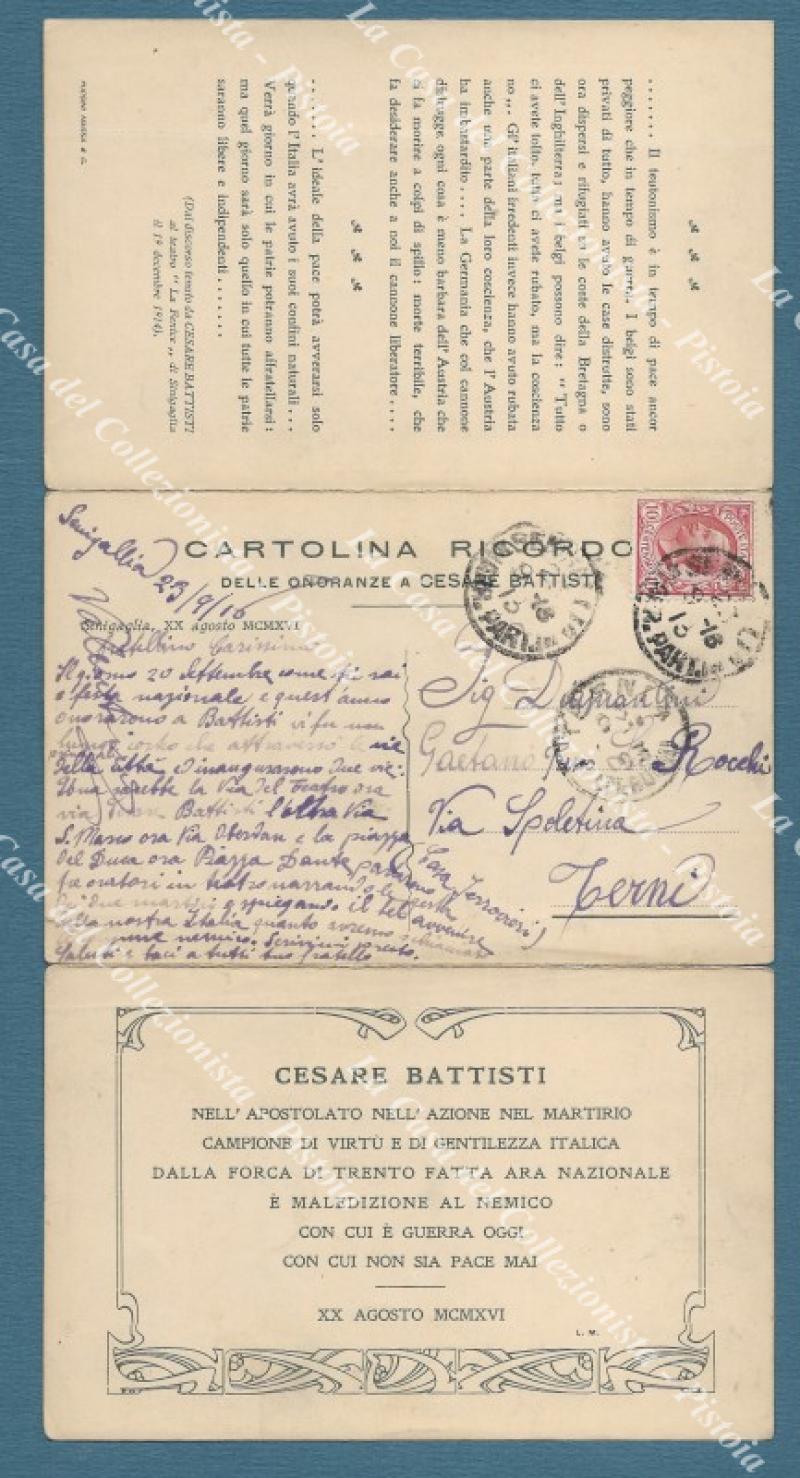 . . . . . . . Il teutonismo è in tempo di pace ancor
peggiore che in tempo di guerra. I belgi sono stati
privati di tutto, hanno avuto le case distrutte, sono
ora dispersi e rifugiati su le coste della Bretagna o
dell'Inghilterra; ma i belgi possono dire: " Tutto
ci avete tolto, tutto ci avete rubato, ma la coscienza
no „. Gl'italiani irredenti invece hanno avuto rubata
anche una parte della loro coscienza, che l'Austria
ha imbastardito . . . . La Germania che col cannone
distrugge ogni cosa è meno barbara dell'Austria che
ci fa morire a colpi di spillo: morte terribile, che
fa desiderare anche a noi il cannone liberatore . . . .
. . . . . . . L'ideale della pace potrà avverarsi solo
quando l'Italia avrà avuto i suoi confini naturali . . .
Verrà giorno in cui le patrie potranno affratellarsi:
ma quel giorno sarà solo quello in cui tutte le patrie
saranno libere e indipendenti . . . . . . .
(Dal discorso tenuto da CESARE BATTISTI
al teatro " La Fenice „ di Sinigaglia
il 19 decembre 1914).
Senigallia 23/9/16
CARTOLINA RICORDO
DELLE ONORANZE A CESARE BATTISTI
Sinigaglia, XX agosto MCMXVI
Fratellino Carissimo
Il giorno 20 Settembre come già sai
è festa nazionale e quest'anno
onorarono a Battisti vi fu un
lungo che attraversò le vie
della città, e inaugurarono due vie:
la Via del Teatro ora
via Battisti l'altra Via
S. Marco ora Via Oberdan e la piazza
del Duca ora Piazza Dante, parlarono
oratori in teatro narrando le gesta
due martiri e spiegando il bel avvenire
della nostra Italia quanto avremo
nemico. Scrivimi presto.
Saluti e baci a tutti tuo fratello
10
Sig
Gaetano Rocchi
Via Spoletina
(Casa
Terni
CESARE BATTISTI
NELL' APOSTOLATO NELL' AZIONE NEL MARTIRIO
CAMPIONE DI VIRTÙ E DI GENTILEZZA ITALICA
DALLA FORCA DI TRENTO FATTA ARA NAZIONALE
È MALEDIZIONE AL NEMICO
CON CUI È GUERRA OGGI
CON CUI NON SIA PACE MAI
XX AGOSTO MCMXVI
L. M.
La Casa del Collezionista - Pistoia